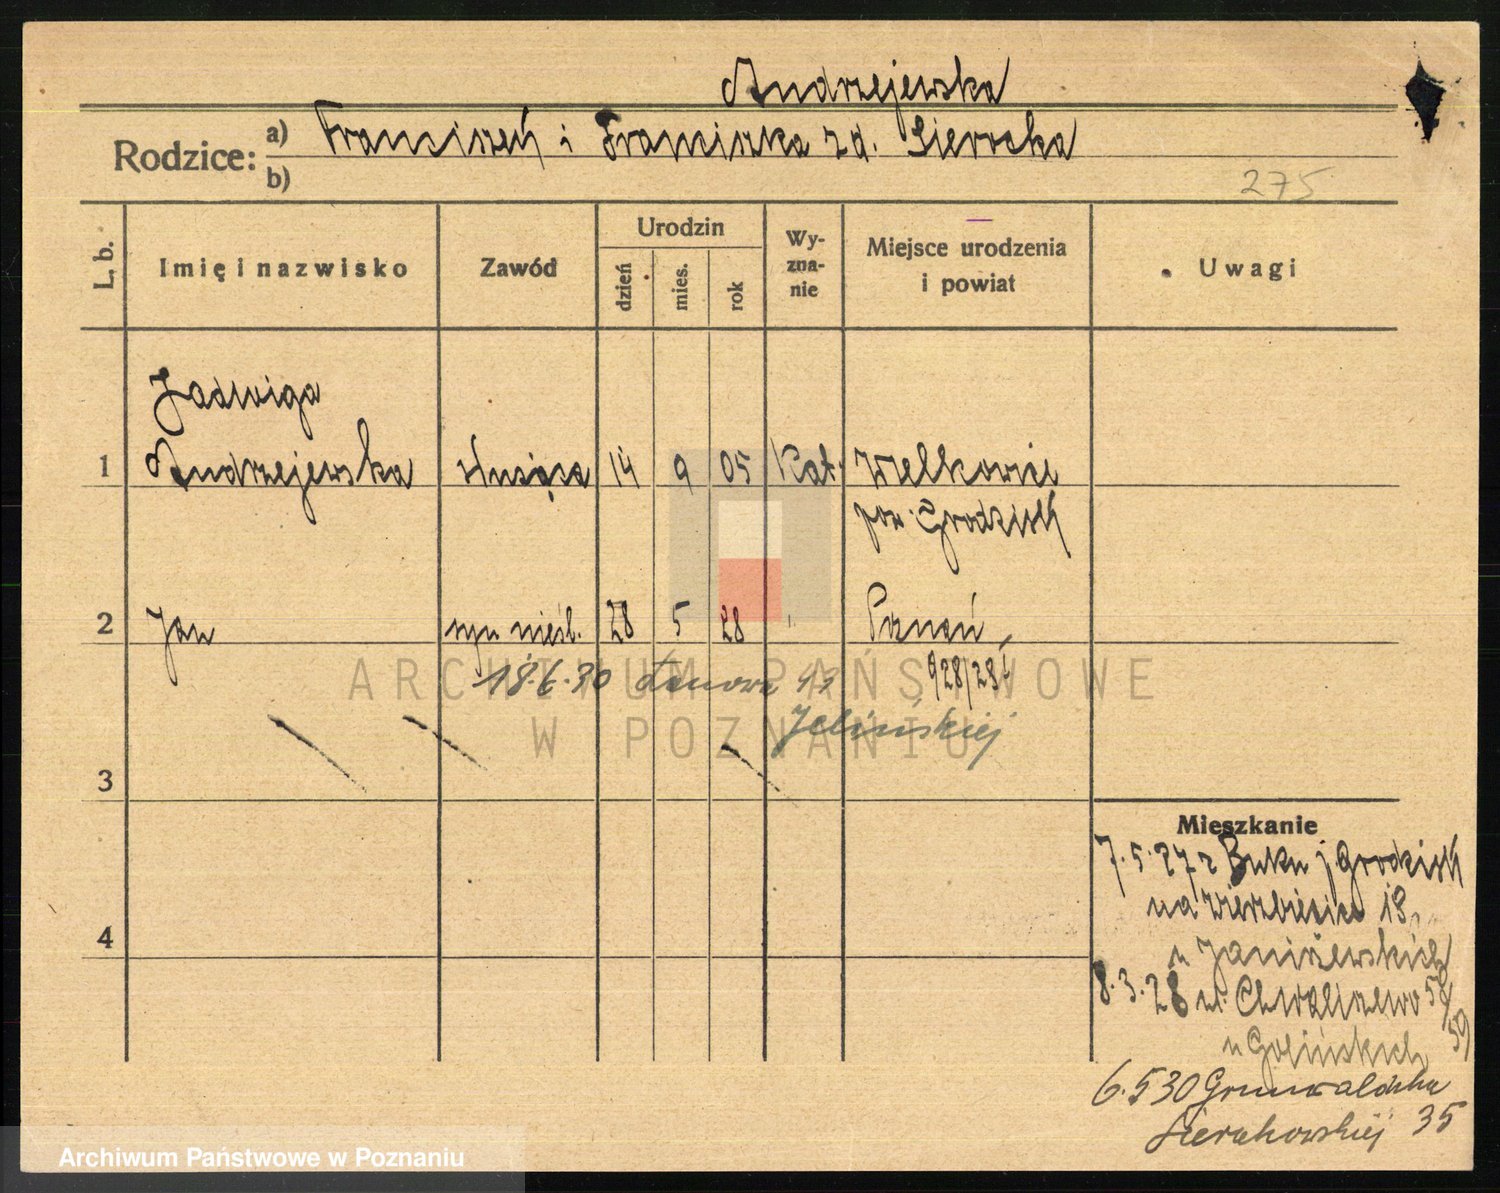 Andrzejewska
Rodzice: a) Franciszek i Franciszka zd. Sierocka
b)
275
L. b.
Imię i nazwisko
Zawód
Urodzin
dzień
mies.
rok
Wy-
zna-
nie
Miejsce urodzenia
i powiat
Uwagi
Jadwiga
1 Andrzejewska służąca 14 9 05 Kat. Wielkowie
pow. Grodzisk
2 Jan syn nieśl. 28 5 28 " Poznań
928/28
18.6.30
Jelińskiej
3
4
Mieszkanie
7.5.27 z Buku j Grodzisk
na Wierzbięcice 18
u Janiszewskich
8.3.28 Chwaliszewo 58/59
u Golińskich
6.5 30 Grunwaldzka
Sierakowskiej 35
ARCHIWUM PAŃSTWOWE
W POZNANIU
Archiwum Państwowe w Poznaniu